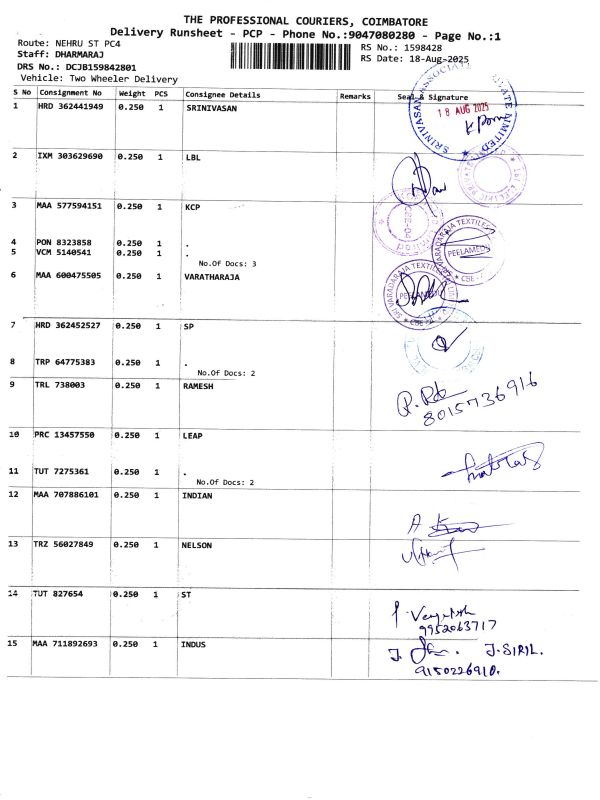 THE PROFESSIONAL COURIERS, COIMBATORE
Delivery Runsheet - PCP - Phone No.:9047080280 - Page No.:1
Route: NEHRU ST PC4
RS No.: 1598428
Staff: DHARMARAJ
RS Date: 18-Aug-2025
DRS No.: DCJB159842801
Vehicle: Two Wheeler Delivery
S No Consignment No Weight PCS Consignee Details Remarks Seal & Signature
1 HRD 362441949 0.250 1 SRINIVASAN
SRINIVASAN ASSOCIATES PRIVATE LIMITED
18 AUG 2025
2 IXM 303629690 0.250 1 LBL
3 MAA 577594151 0.250 1 KCP
4 PON 8323858 0.250 1 .
5 VCM 5140541 0.250 1 .
No.Of Docs: 3
SRI VARADARAJA TEXTILES
PEELAMEDU
6 MAA 600475505 0.250 1 VARATHARAJA
SRI VARADARAJA TEXTILES
PEELAMEDU
7 HRD 362452527 0.250 1 SP
8 TRP 64775383 0.250 1 .
No.Of Docs: 2
9 TRL 738003 0.250 1 RAMESH
8015736916
10 PRC 13457550 0.250 1 LEAP
11 TUT 7275361 0.250 1 .
No.Of Docs: 2
12 MAA 707886101 0.250 1 INDIAN
13 TRZ 56027849 0.250 1 NELSON
14 TUT 827654 0.250 1 ST
9952063717
15 MAA 711892693 0.250 1 INDUS
J. SIRIL.
9150226910.